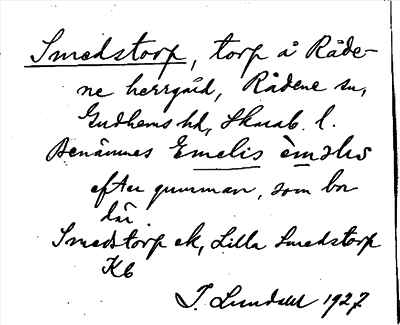 Smedstorp, torp å Råde-
ne herrgård, Rådene sn,
Gudhems hd, Skarab. l.
Benämnes Emelis èməlis
efter gumman, som bor
där
Smedstorp ek, Lilla Smedstorp
Kb
T. Lundell 1927